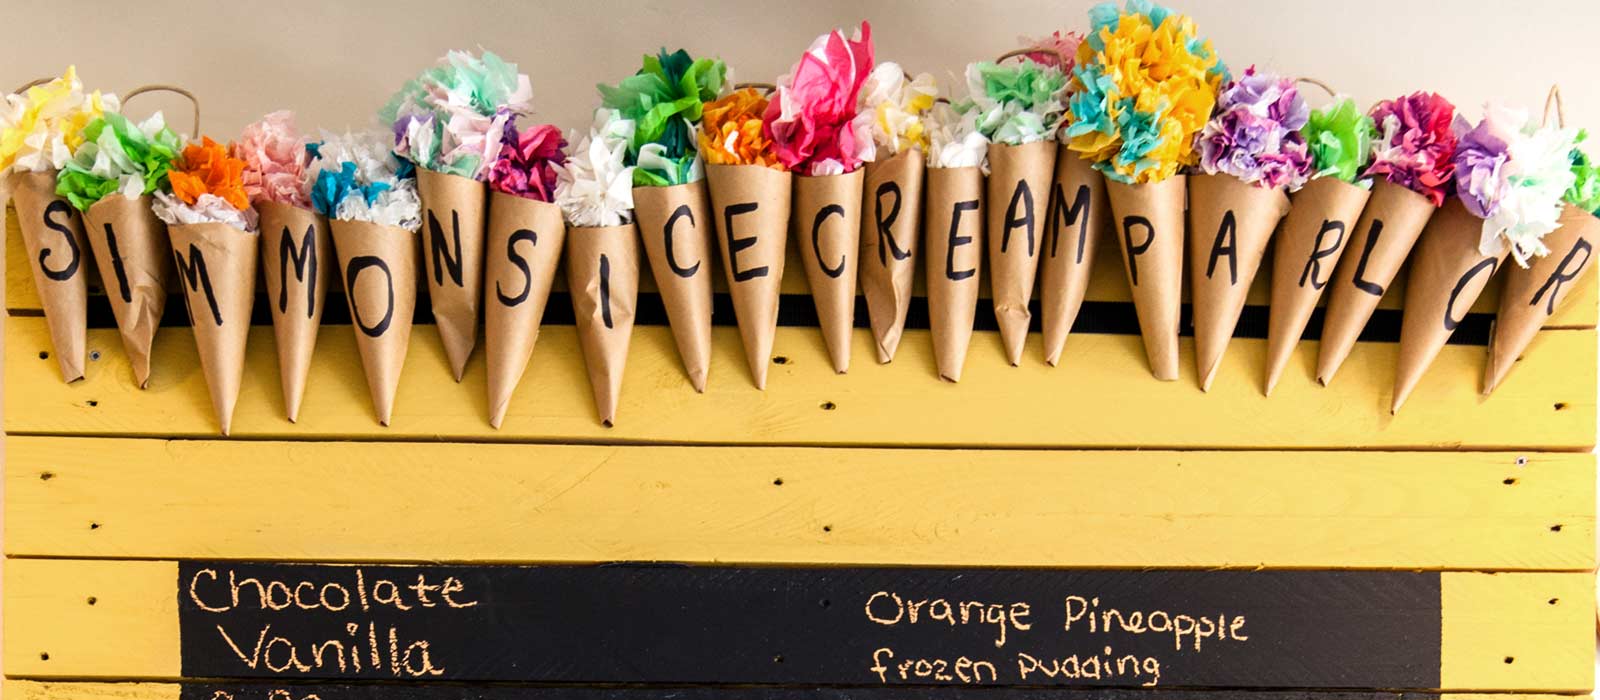 SIMMONS ICE CREAM PARLOR
Chocolate
Vanilla
Orange Pineapple
frozen pudding